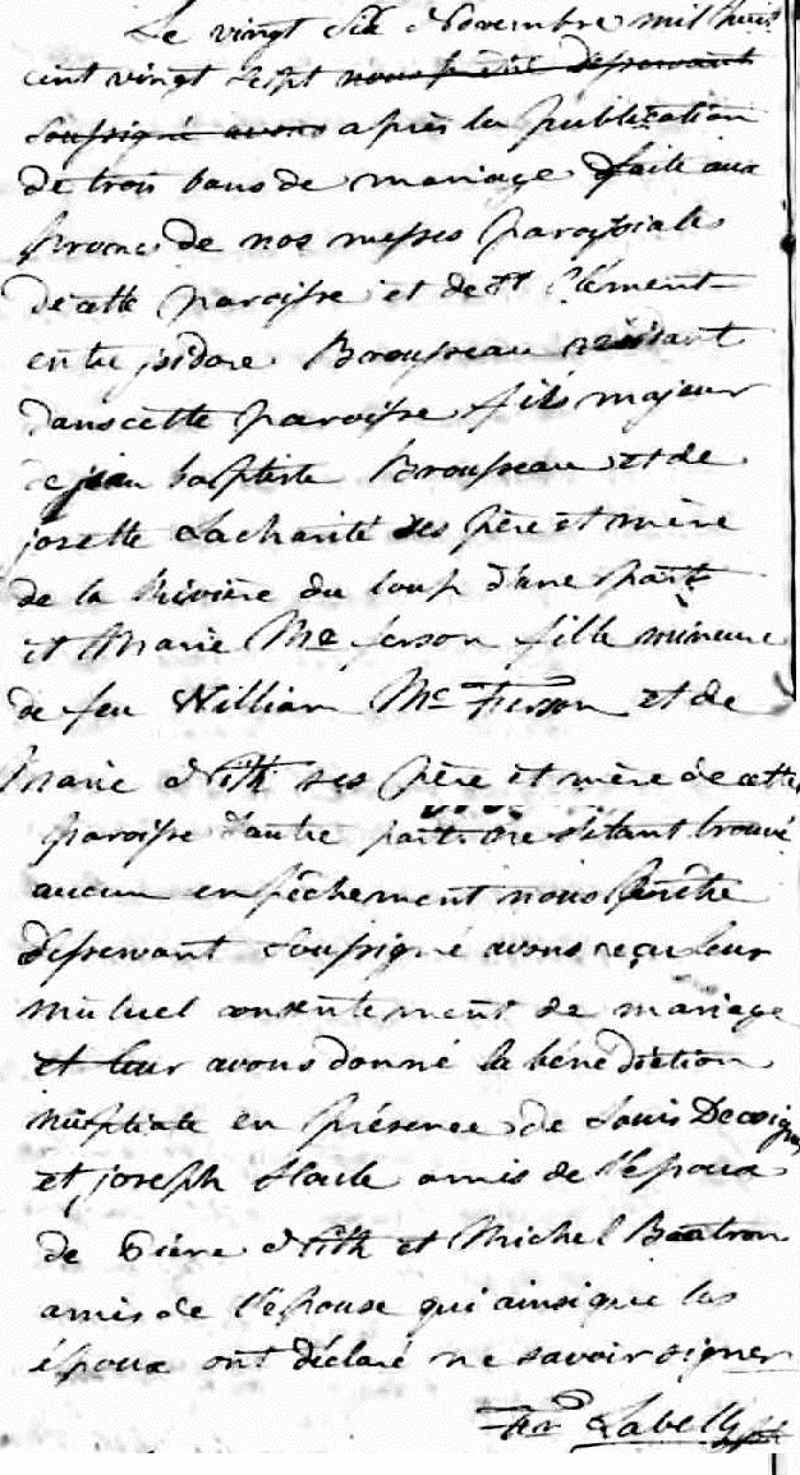 Le vingt Six Novembre mil huit
cent vingt Sept nous prêtre desservant
soussigné avons après la publication
de trois bans de mariage faite aux
prones de nos messes paroissiales
de cette paroisse et de St Clément
entre isidore Brousseau résidant
dans cette paroisse fils majeur
de jean baptiste Brousseau et de
josette Lacharité ses père et mère
de la Rivière du loup d'une part
et Marie Mc ferson fille mineure
de feu William Mc Fierson et de
Marie Nith ses père et mère de cette
paroisse d'autre part ne s'étant trouvé
aucun enpêchement nous Prêtre
desservant soussigné avons reçu leur
mutuel consentement de mariage
et leur avons donné la bénédiction
nuptiale en présence de Louis
et joseph amis de l'époux
de Pière Nith et Michel
amis de l'épouse qui ainsi que les
époux ont déclaré ne savoir signer
Frs Labelle ptr